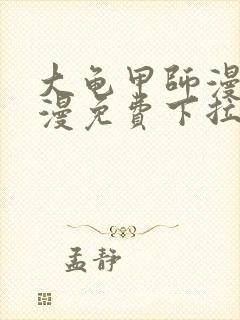 大龟甲師漫
漫免費下拉
孟静